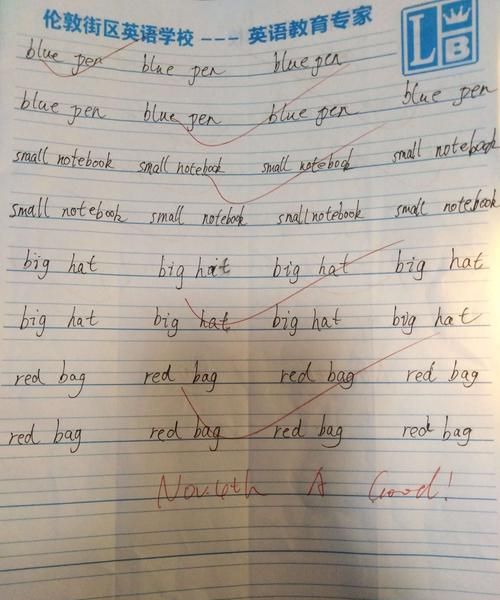 伦敦街区英语学校 --- 英语教育专家
LB
blue pen blue pen blue pen
blue pen blue pen blue pen blue pen
small notebook small notebook small notebook small notebook
small notebook small notebook small notebook small notebook
big hat big hat big hat big hat
big hat big hat big hat big hat
red bag red bag red bag red bag
red bag red bag red bag red bag
Nov. 6th A Good!